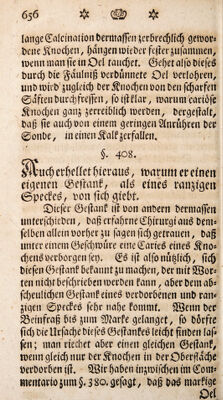 656
lange Calcination dermassen zerbrechlich gewor-
dene Knochen, hängen wieder fester zusammen,
wenn man sie in Oel tauchet. Gehet also dieses
durch die Fäulniß verdünnete Oel verlohren,
und wird zugleich der Knochen von den scharfen
Säften durchfressen, so ist klar, warum cariöse
Knochen ganz zerreiblich werden, dergestalt,
daß sie auch von einem geringen Anrühren der
Sonde, in einen Kalk zerfallen.
§. 408.
Auch erhellet hieraus, warum er einen
eigenen Gestank, als eines ranzigen
Speckes, von sich giebt.
Dieser Gestank ist von andern dermassen
unterschieden, daß erfahrne Chirurgi aus dem-
selben allein vorher zu sagen sich getrauen, daß
unter einem Geschwüre eine Caries eines Kno-
chens verborgen sey. Es ist also nützlich, sich
diesen Gestank bekannt zu machen, der mit Wor-
ten nicht beschrieben werden kann, aber dem ab-
scheulichen Gestank eines verdorbenen und ran-
zigen Speckes sehr nahe kommt. Wenn der
Beinfraß bis zum Marke gelanget, so dörfte
sich die Ursache dieses Gestankes leicht finden las-
sen; man riechet aber einen gleichen Gestank,
wenn gleich nur der Knochen in der Oberfläche
verdorben ist. Wir haben inzwischen im Com-
mentario zum §. 380. gesagt, daß das markige
Oel